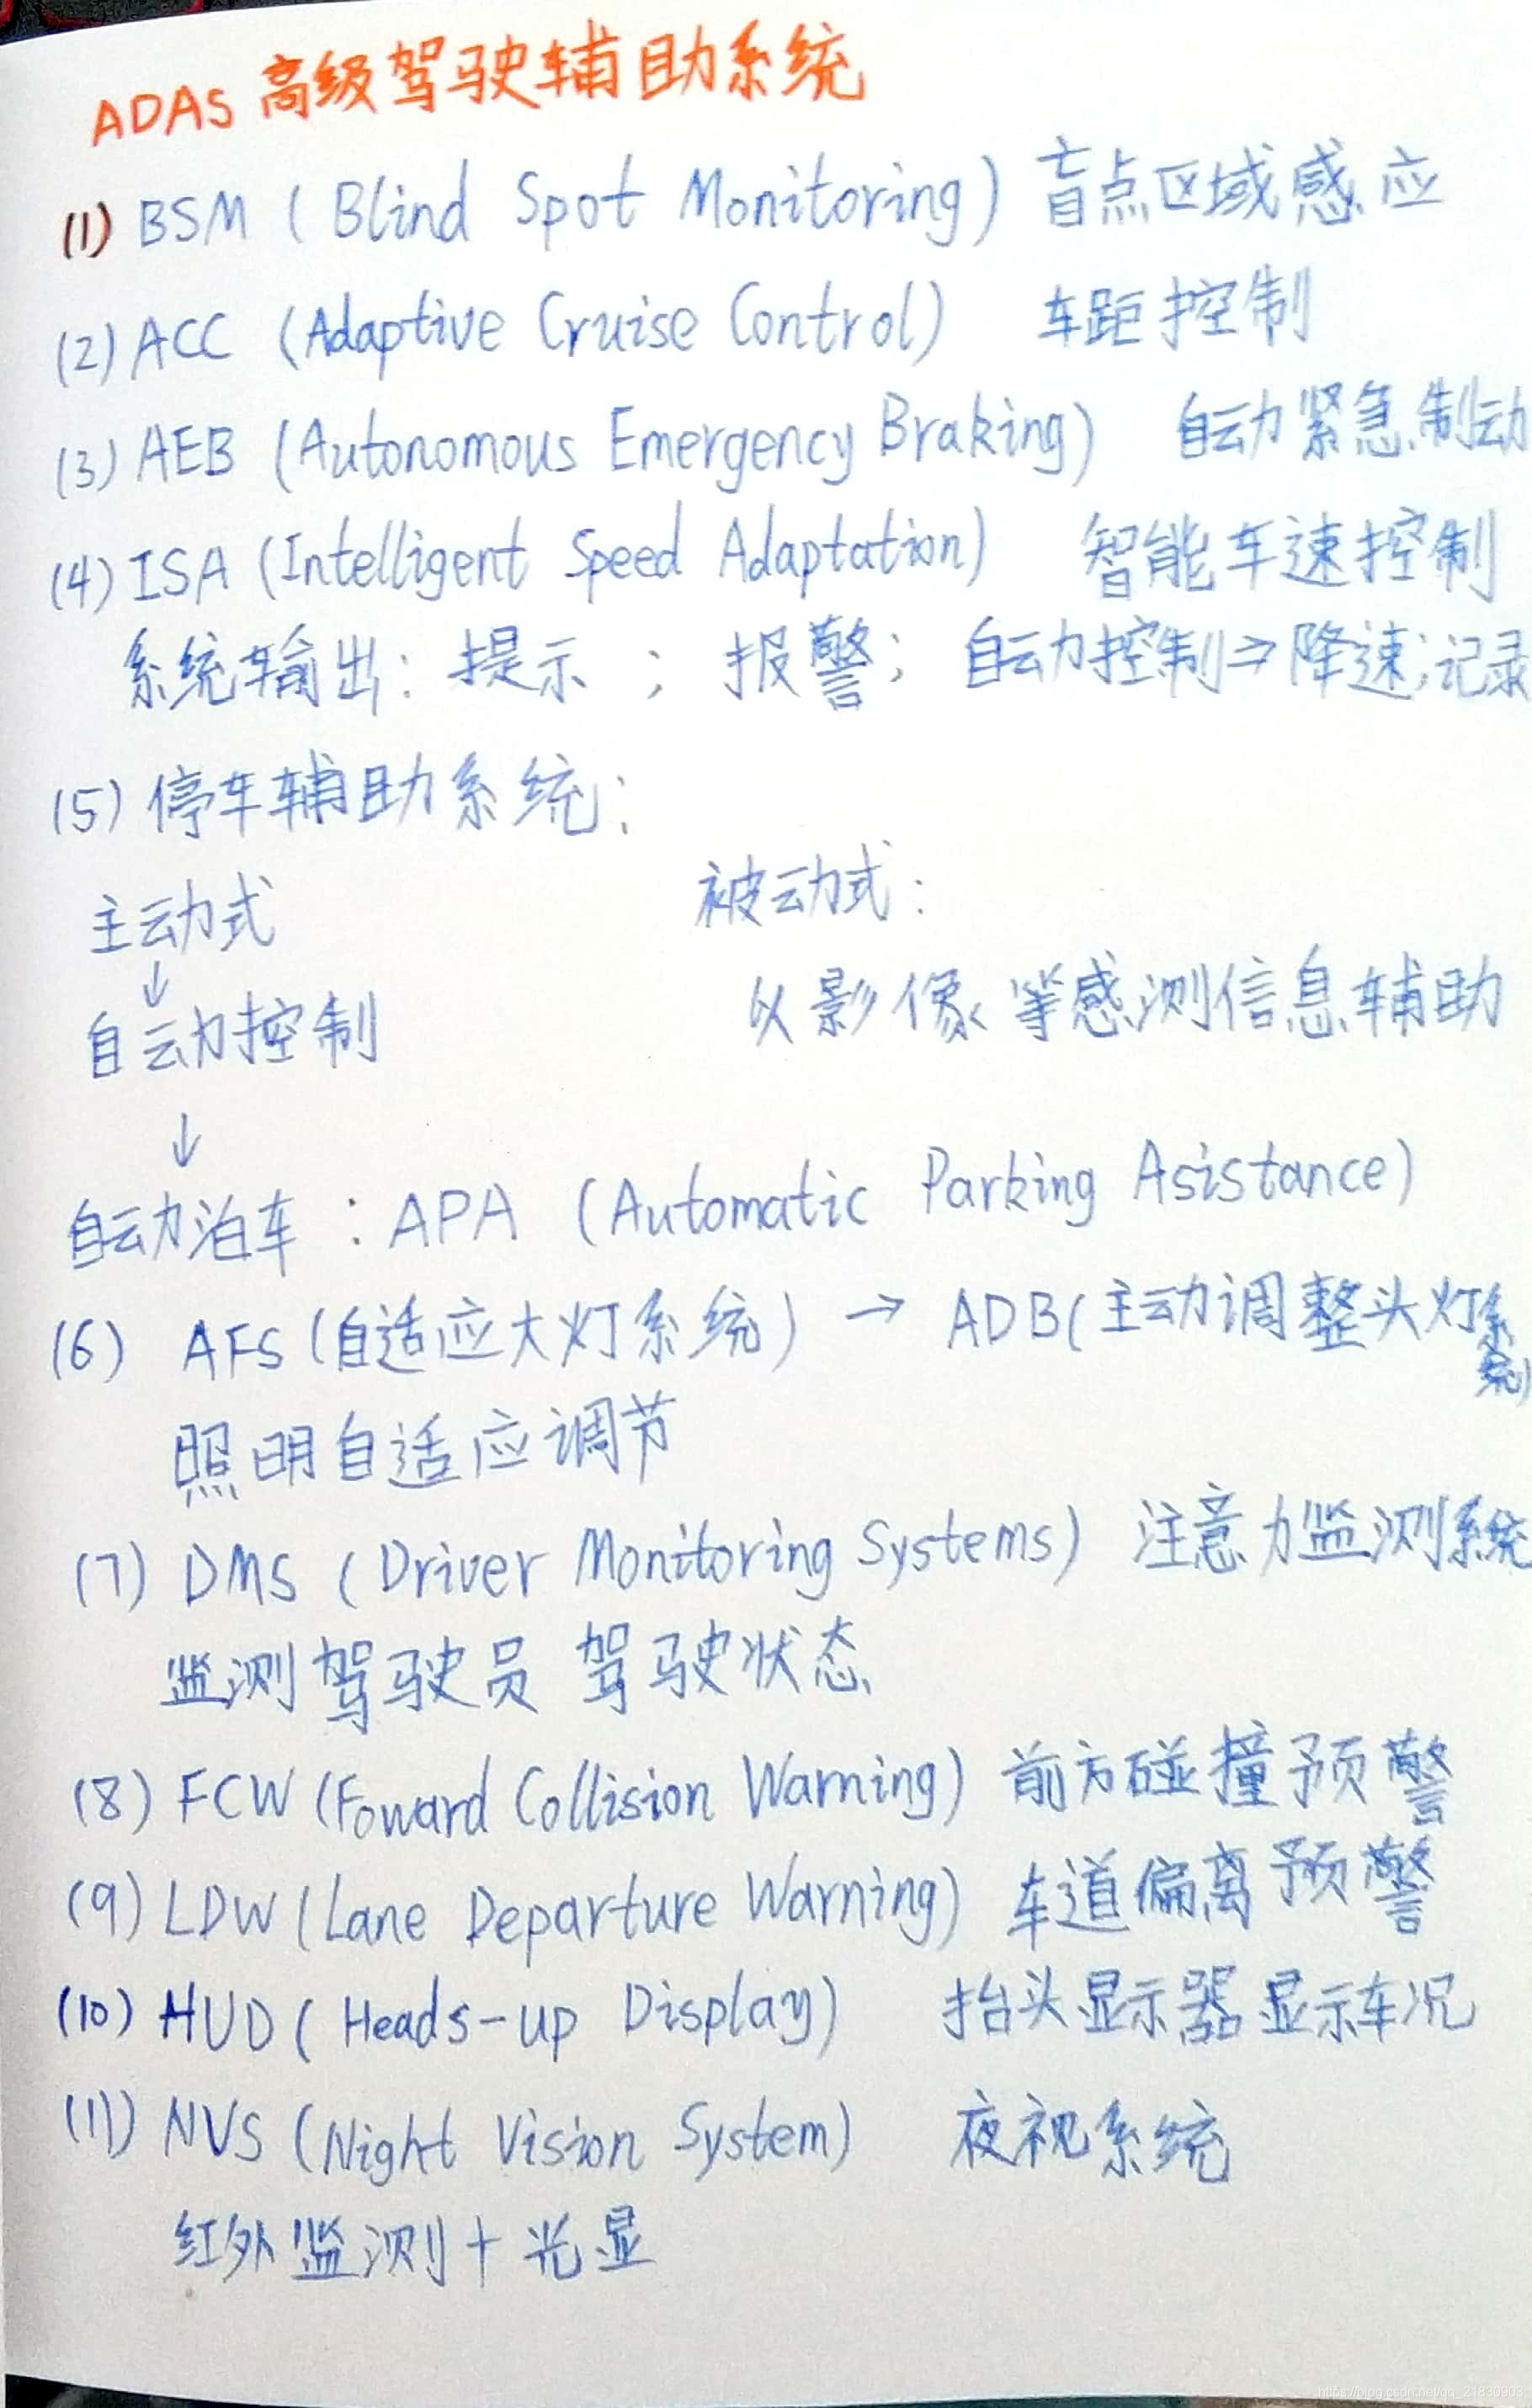 ADAS 高级驾驶辅助系统
(1) BSM ( Blind Spot Monitoring) 盲点区域感应
(2) ACC (Adaptive Cruise Control) 车距控制
(3) AEB (Autonomous Emergency Braking) 自动紧急制动
(4) ISA (Intelligent Speed Adaptation) 智能车速控制
系统输出: 提示 ; 报警; 自动控制⇒降速;记录
(5) 停车辅助系统:
主动式 被动式:
↓
自动控制 以影像等感测信息辅助
↓
自动泊车 : APA (Automatic Parking Asistance)
(6) AFS (自适应大灯系统) → ADB(主动调整头灯系统)
照明自适应调节
(7) DMS (Driver Monitoring Systems) 注意力监测系统
监测驾驶员 驾驶状态
(8) FCW (Foward Collision Warning) 前方碰撞预警
(9) LDW (Lane Departure Warning) 车道偏离预警
(10) HUD ( Heads-up Display) 抬头显示器显示车况
(11) NVS (Night Vision System) 夜视系统
红外监测+光显
https://blog.csdn.net/qq_21830903